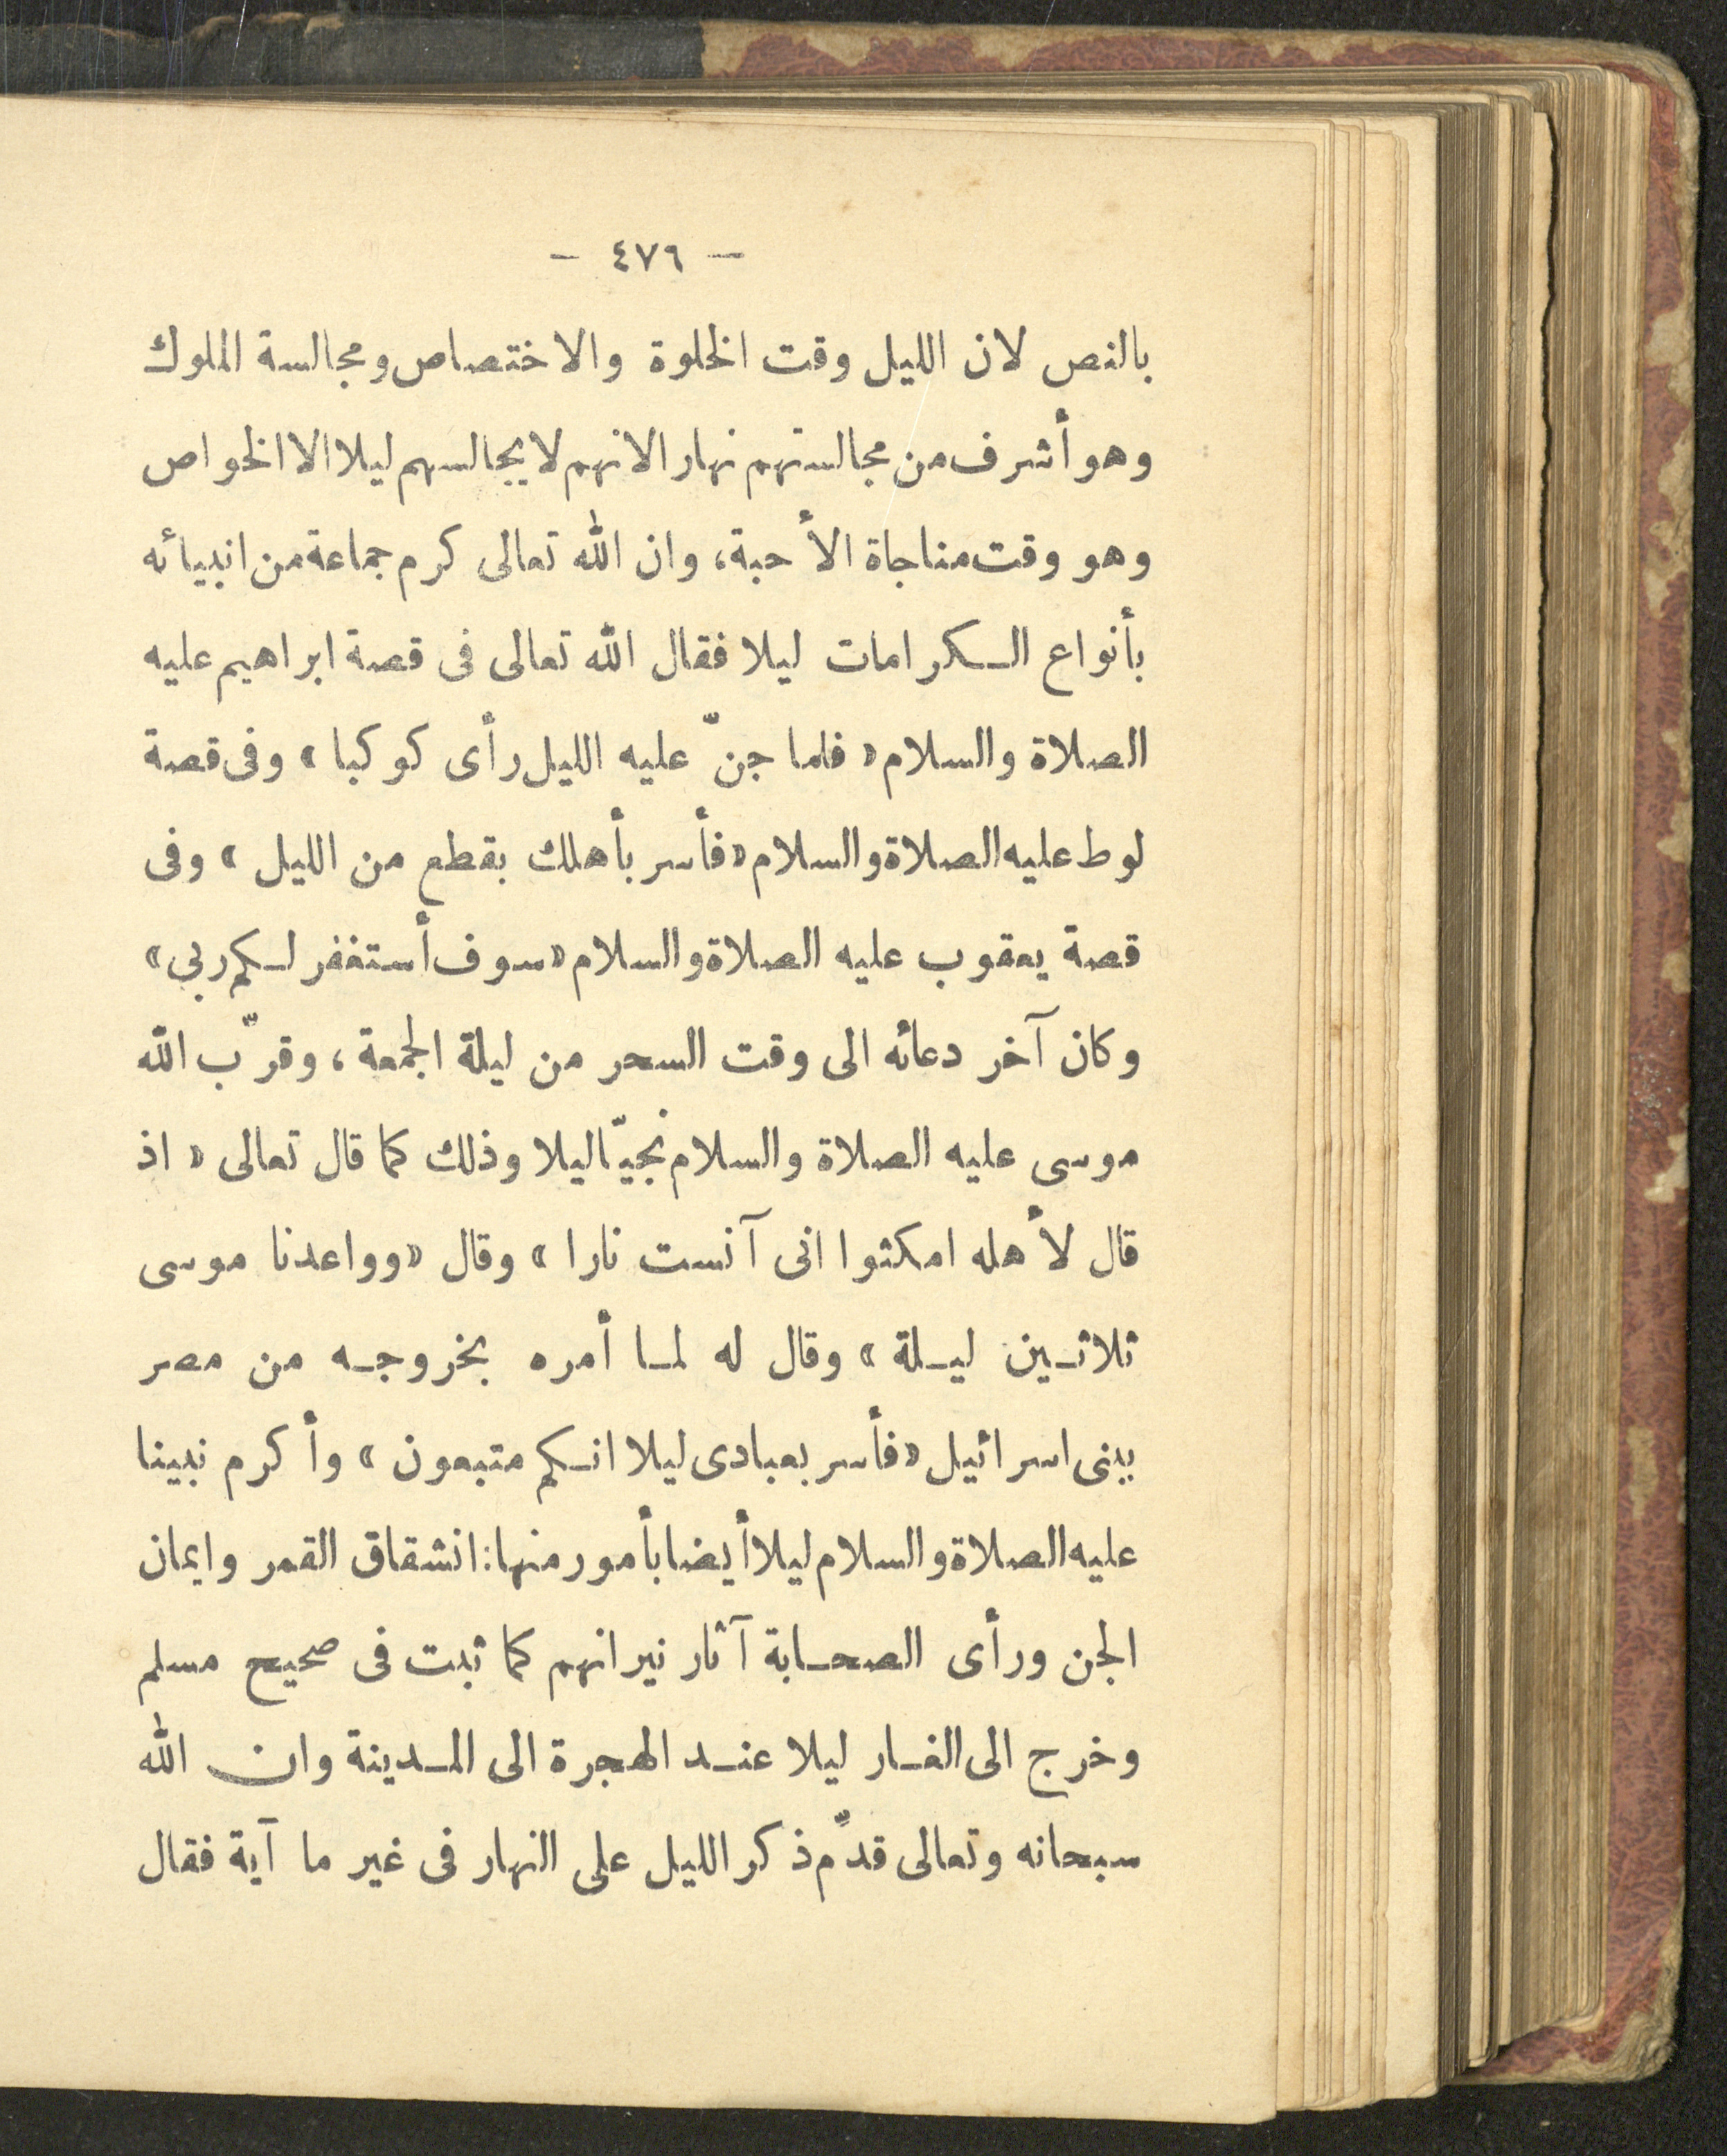 — ٤٧٦ —
بالنص لان الليل وقت الخلوة والاختصاص ومجالسة الملوك
وهو أشرف من مجالستهم نهارا لانهم لا يجالسهم ليلا الا الخواص
وهو وقت مناجاة الأحبة، وان الله تعالى كرم جماعة من انبيائه
بأنواع الكرامات ليلا فقال الله تعالى فى قصة ابراهيم عليه
الصلاة والسلام «فلما جنّ عليه الليل رأى كوكبا» وفى قصة
لوط عليه الصلاة والسلام «فأسر بأهلك بقطع من الليل» وفى
قصة يعقوب عليه الصلاة والسلام «سوف أستغفر لكم ربي»
وكان آخر دعائه الى وقت السحر من ليلة الجمعة، وقرّب الله
موسى عليه الصلاة والسلام نجيّا ليلا وذلك كما قال تعالى «اذ
قال لأهله امكثوا انى آنست نارا» وقال «وواعدنا موسى
ثلاثين ليلة» وقال له لما أمره بخروجه من مصر
ببنى اسرائيل «فأسر بعبادى ليلا انكم متبعون» وأكرم نبينا
عليه الصلاة والسلام ليلا أيضا بأمور منها: انشقاق القمر وايمان
الجن ورأى الصحابة آثار نيرانهم كما ثبت فى صحيح مسلم
وخرج الى الغار ليلا عند الهجرة الى المدينة وان الله
سبحانه وتعالى قدّم ذكر الليل على النهار فى غير ما آية فقال